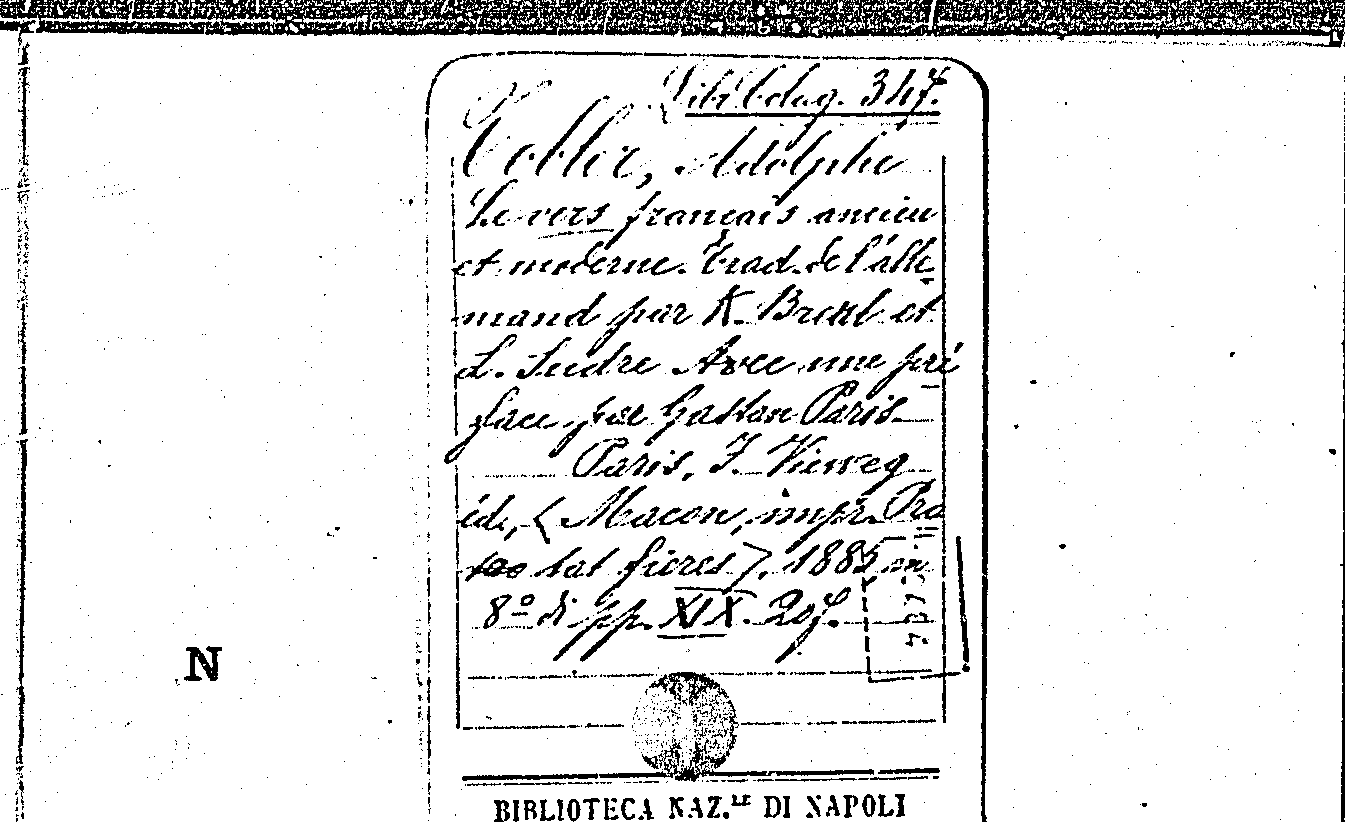 347.
Tobler, Adolphe
Le vers français ancien
et moderne. Trad. de l'alle
mand par K. Breul et
L. Sudre Avec une pré
face par Gaston Paris
Paris, F. Vieweg
éd, (Macon, impr. Pro
tat fières), 1885 in
8º di pp. XIX. 207.
N
BIBLIOTECA NAZ.LE DI NAPOLI